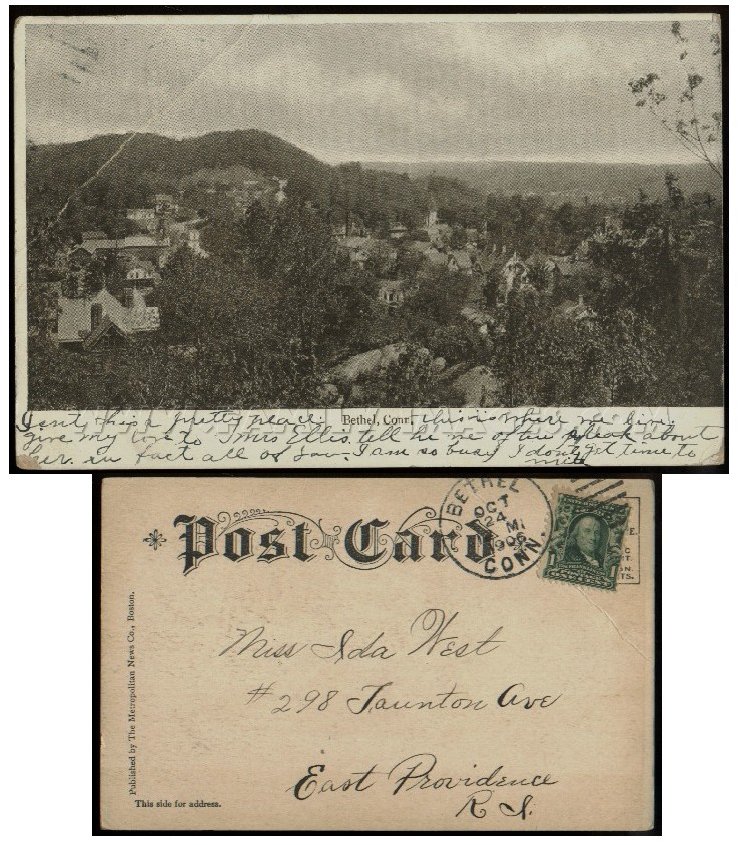 Isent this a pretty place. Bethel, Conn. this is where we live
give my love to Mrs Ellis tell he we often speak about
her. in fact all of you. I am so busy I don't get time to
write
Post Card
BETHEL
OCT
24
1906
CONN.
Miss Ida West
#298 Taunton Ave
East Providence
R I.
Published by The Metropolitan News Co., Boston.
This side for address.